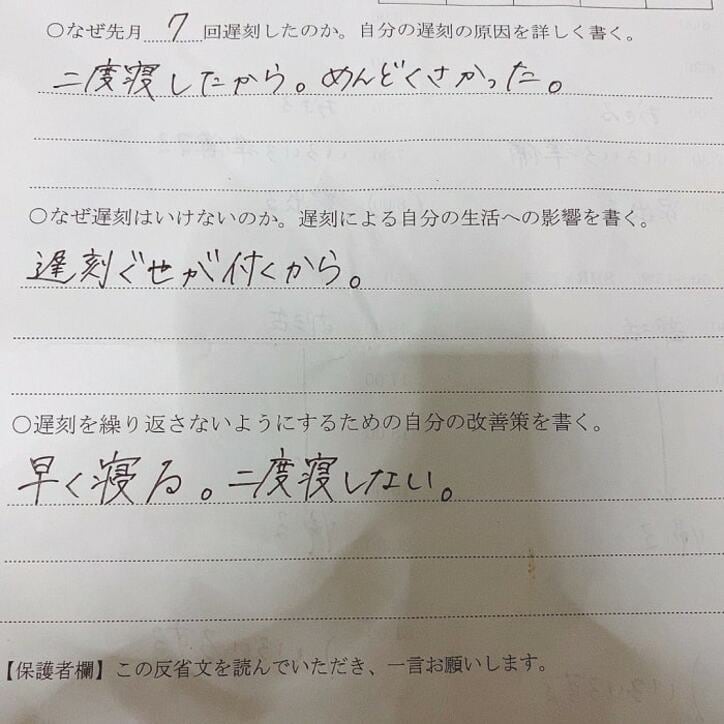 ○なぜ先月 7 回遅刻したのか。自分の遅刻の原因を詳しく書く。
二度寝したから。めんどくさかった。
○なぜ遅刻はいけないのか。遅刻による自分の生活への影響を書く。
遅刻ぐせが付くから。
○遅刻を繰り返さないようにするための自分の改善策を書く。
早く寝る。二度寝しない。
【保護者欄】この反省文を読んでいただき、一言お願いします。